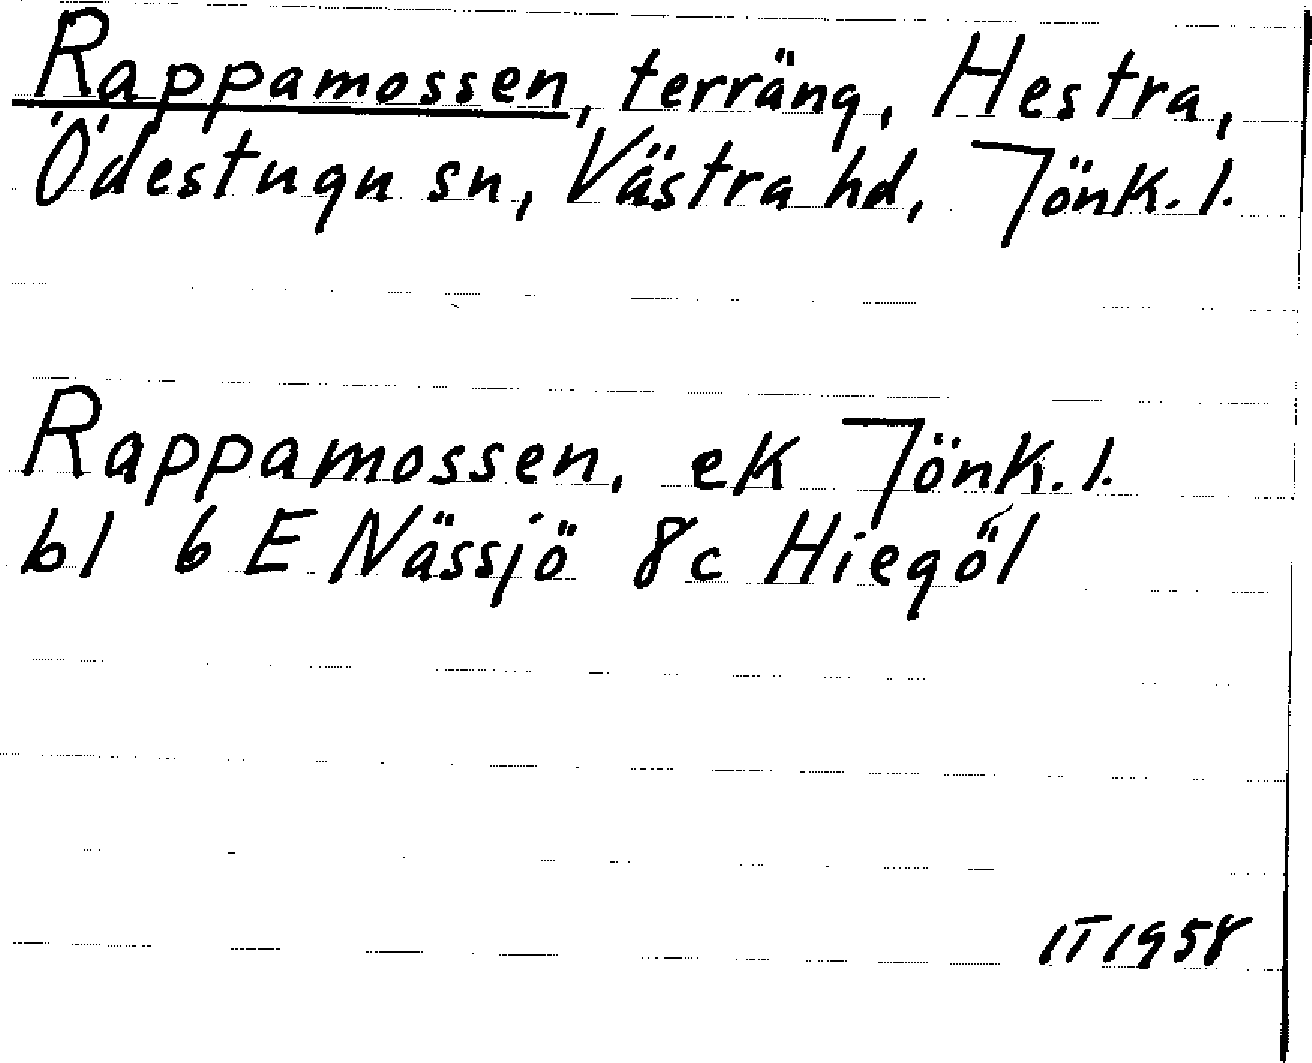 Rappamossen, terräng, Hestra,
Ödestugu sn, Västra hd, Jönk. l.
Rappamossen, ek Jönk. l.
bl 6 E Nässjö 8c Hiegöl
IT 1958